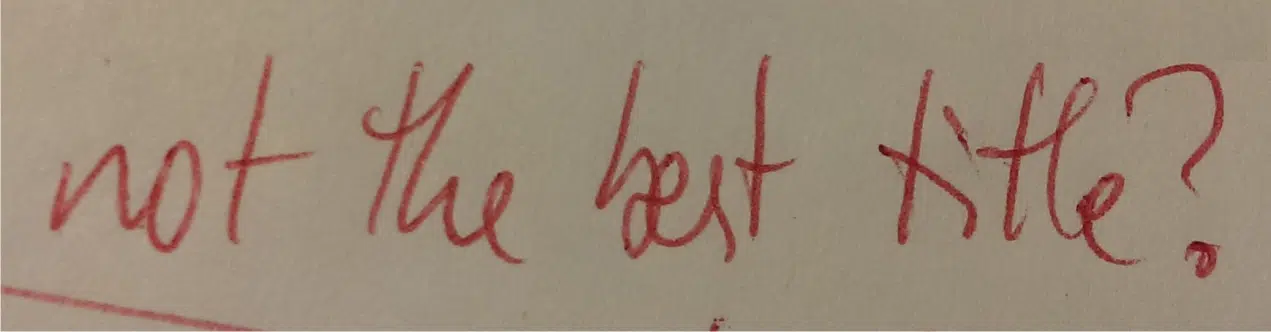 not the best title?